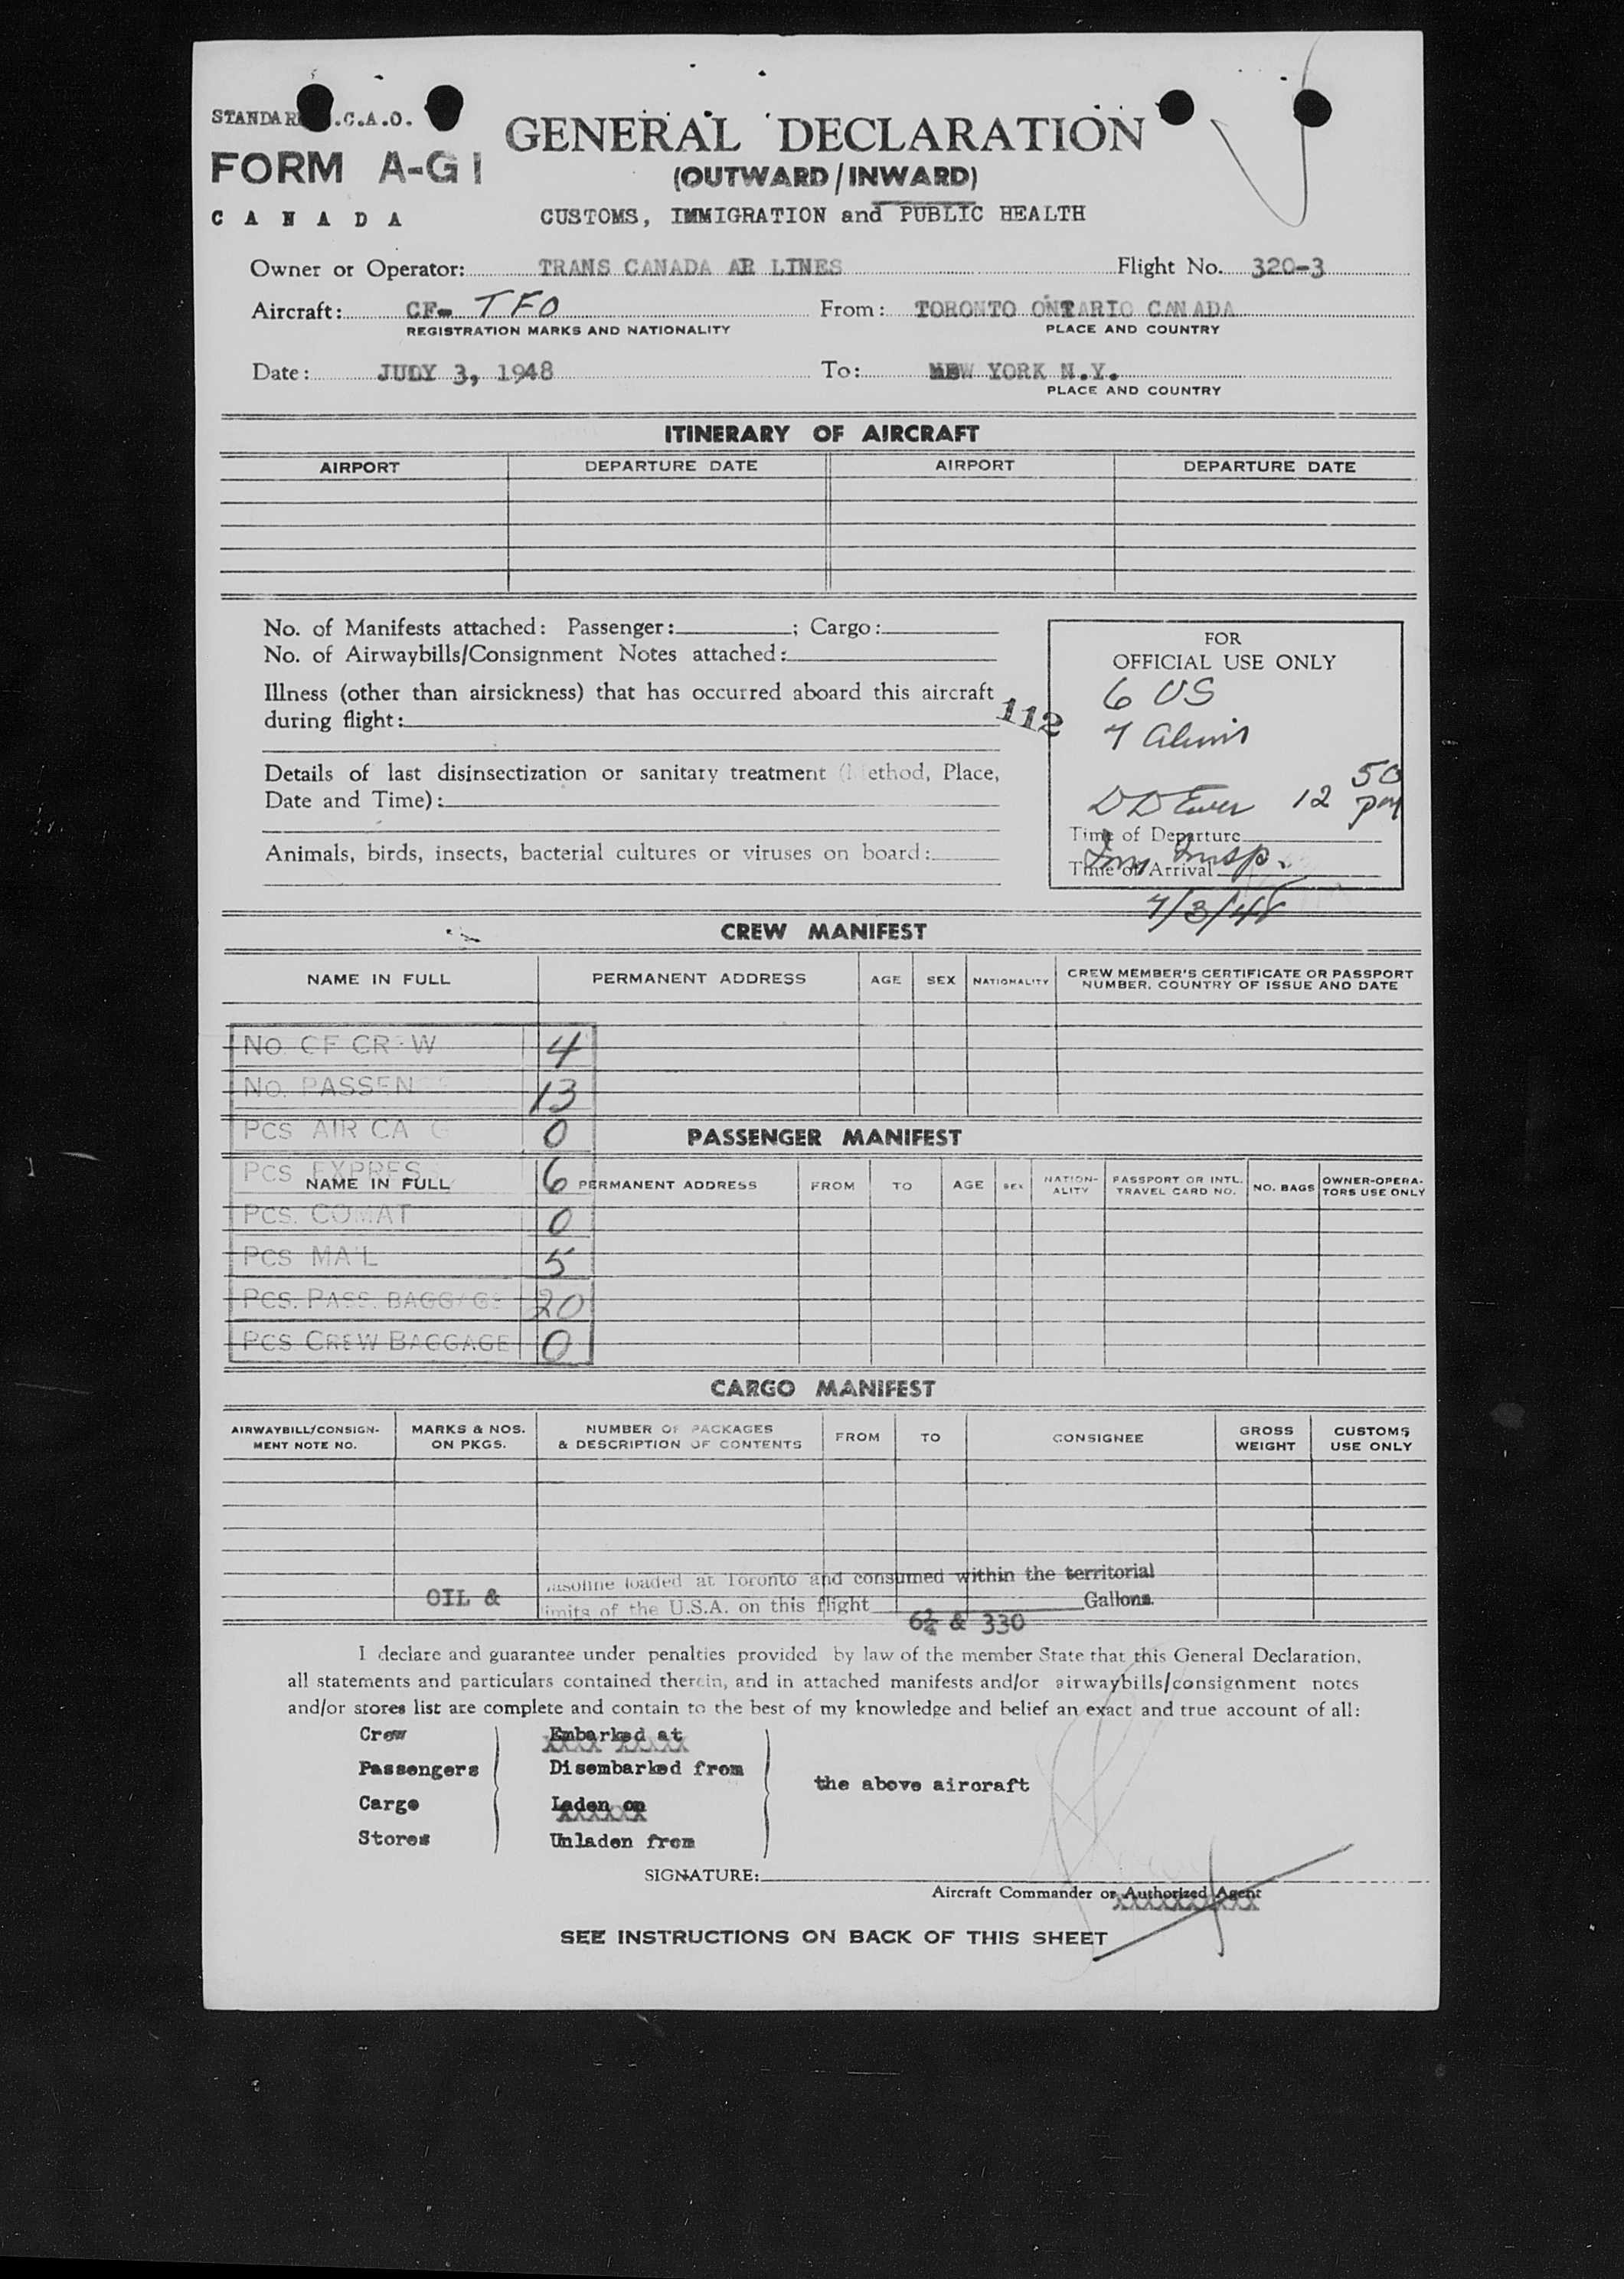 STANDARD I.C.A.O.
FORM A-G1
CANADA
GENERAL DECLARATION
(OUTWARD/INWARD)
CUSTOMS, IMMIGRATION and PUBLIC HEALTH
Owner or Operator: TRANS CANADA AR LINES Flight No. 320-3
Aircraft: CF- TFO From: TORONTO ONTARIO CANADA
REGISTRATION MARKS AND NATIONALITY PLACE AND COUNTRY
Date: JULY 3, 1948 To: NEW YORK N.Y.
PLACE AND COUNTRY
ITINERARY OF AIRCRAFT
AIRPORT DEPARTURE DATE AIRPORT DEPARTURE DATE
No. of Manifests attached: Passenger: ; Cargo:
No. of Airwaybills/Consignment Notes attached:
Illness (other than airsickness) that has occurred aboard this aircraft
during flight:
Details of last disinsectization or sanitary treatment (Method, Place,
Date and Time):
Animals, birds, insects, bacterial cultures or viruses on board:
112
FOR
OFFICIAL USE ONLY
6 US
7 Aliens
12 50 pm
Time of Departure
Imm Insp.
Time of Arrival
7/3/48
CREW MANIFEST
NAME IN FULL PERMANENT ADDRESS AGE SEX NATIONALITY CREW MEMBER'S CERTIFICATE OR PASSPORT
NUMBER, COUNTRY OF ISSUE AND DATE
NO. OF CREW 4
NO. PASSEN 13
PCS AIR CA G 0
PASSENGER MANIFEST
PCS EXPRES 6
NAME IN FULL PERMANENT ADDRESS FROM TO AGE SEX NATION-
ALITY PASSPORT OR INTL.
TRAVEL CARD NO. NO. BAGS OWNER-OPERA-
TORS USE ONLY
PCS. COMAT 0
PCS MAIL 5
PCS. PASS. BAGGAGE 20
PCS CREW BAGGAGE 0
CARGO MANIFEST
AIRWAYBILL/CONSIGN-
MENT NOTE NO. MARKS & NOS.
ON PKGS. NUMBER OF PACKAGES
& DESCRIPTION OF CONTENTS FROM TO CONSIGNEE GROSS
WEIGHT CUSTOMS
USE ONLY
OIL & Gasoline loaded at Toronto and consumed within the territorial
limits of the U.S.A. on this flight Gallons.
6¼ & 330
I declare and guarantee under penalties provided by law of the member State that this General Declaration,
all statements and particulars contained therein, and in attached manifests and/or airwaybills/consignment notes
and/or stores list are complete and contain to the best of my knowledge and belief an exact and true account of all:
Crew Embarked at
Passengers Disembarked from
the above aircraft
Cargo Laden on
Stores Unladen from
SIGNATURE:
Aircraft Commander or Authorized Agent
SEE INSTRUCTIONS ON BACK OF THIS SHEET